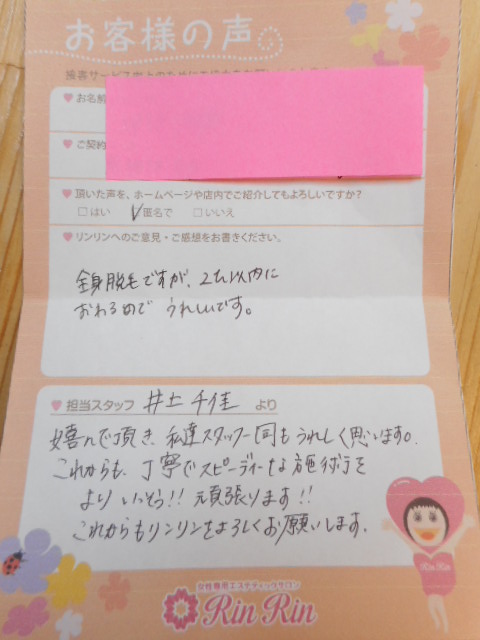 お客様の声
♥ お名前
♥ ご契約
♥ 頂いた声を、ホームページや店内でご紹介してもよろしいですか?
□はい ☑匿名で □いいえ
♥ リンリンへのご意見・ご感想をお書きください。
全身脱毛ですが、2h以内に
おわるので うれしいです。
♥ 担当スタッフ 井上 千佳 より
嬉んで頂き、私達スタッフ一同もうれしく思います。
これからも、丁寧でスピーディーな施術を
よりいっそう!! 頑張ります!!
これからもリンリンをよろしくお願いします。
Rin Rin
女性専用エステティックサロン
Rin Rin